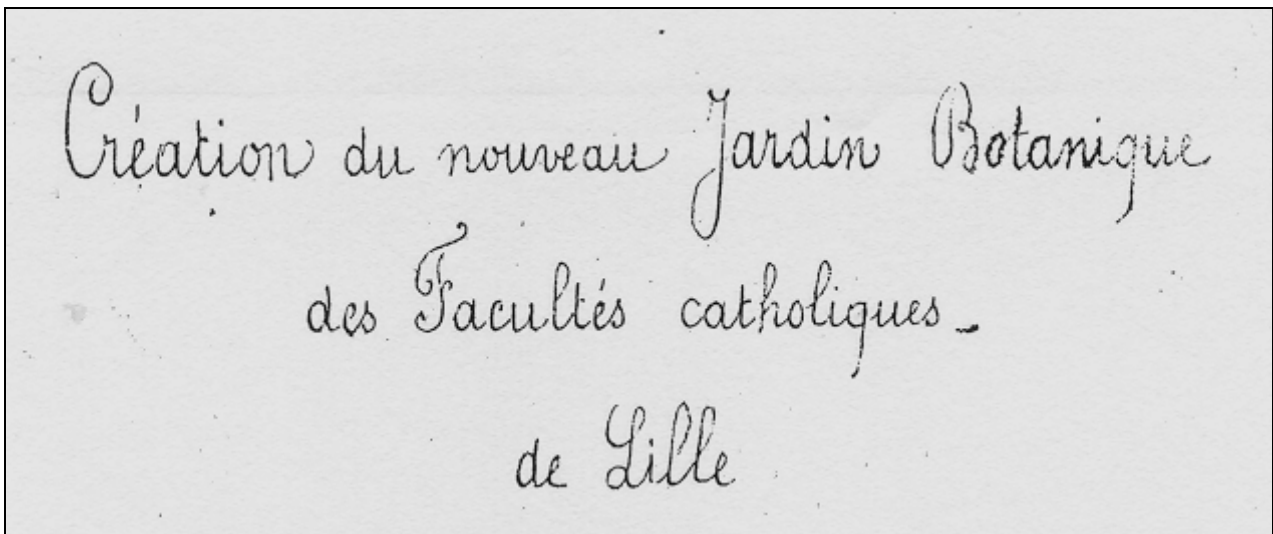 Création du nouveau Jardin Botanique
des Facultés catholiques_
de Lille